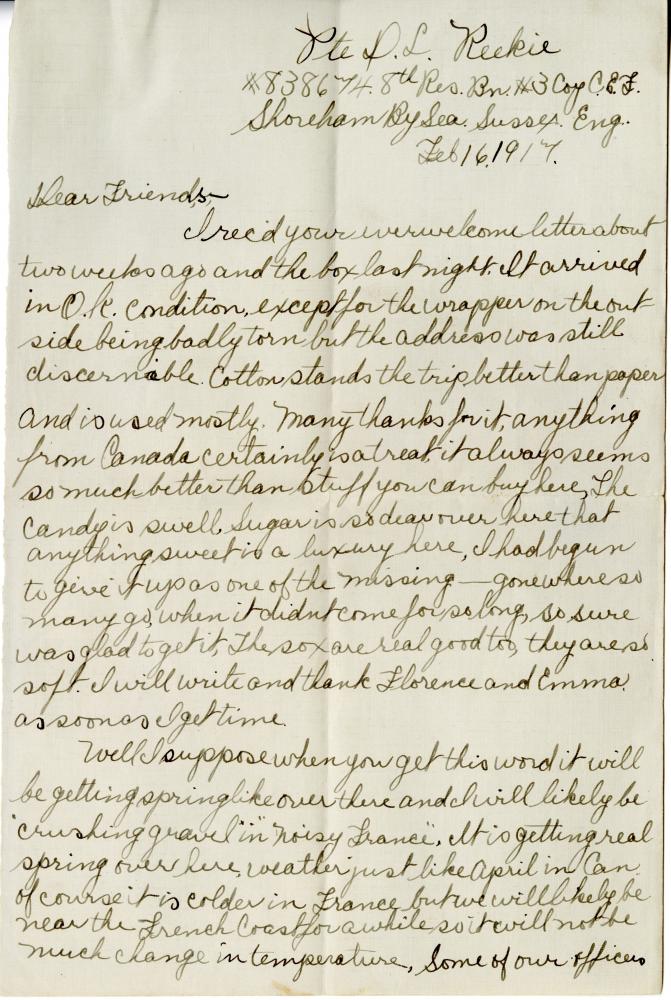 Pte D. L. Reekie
#838674. 8th Res. Bn. #3 Coy C.E.F.
Shoreham By Sea. Sussex. Eng.
Feb 16, 1917.
Dear Friends,-
I rec'd your ever welcome letter about
two weeks ago and the box last night. It arrived
in O.K. condition, except for the wrapper on the out
side being badly torn but the address was still
discernable. Cotton stands the trip better than paper
and is used mostly. Many thanks for it, anything
from Canada certainly is a treat, it always seems
so much better than stuff you can buy here, The
candy is swell, Sugar is so dear over here that
anything sweet is a luxury here, I had begun
to give it up as one of the "missing — gone where so
many go, when it didnt come for so long, so sure
was glad to get it, The sox are real good too, they are so
soft. I will write and thank Florence and Emma
as soon as I get time.
Well I suppose when you get this word it will
be getting springlike over there and I will likely be
"crushing gravel" in "noisy France", It is getting real
spring over here, weather just like April in Can
of course it is colder in France but we will likely be
near the French Coast for awhile so it will not be
much change in temperature, Some of our officers